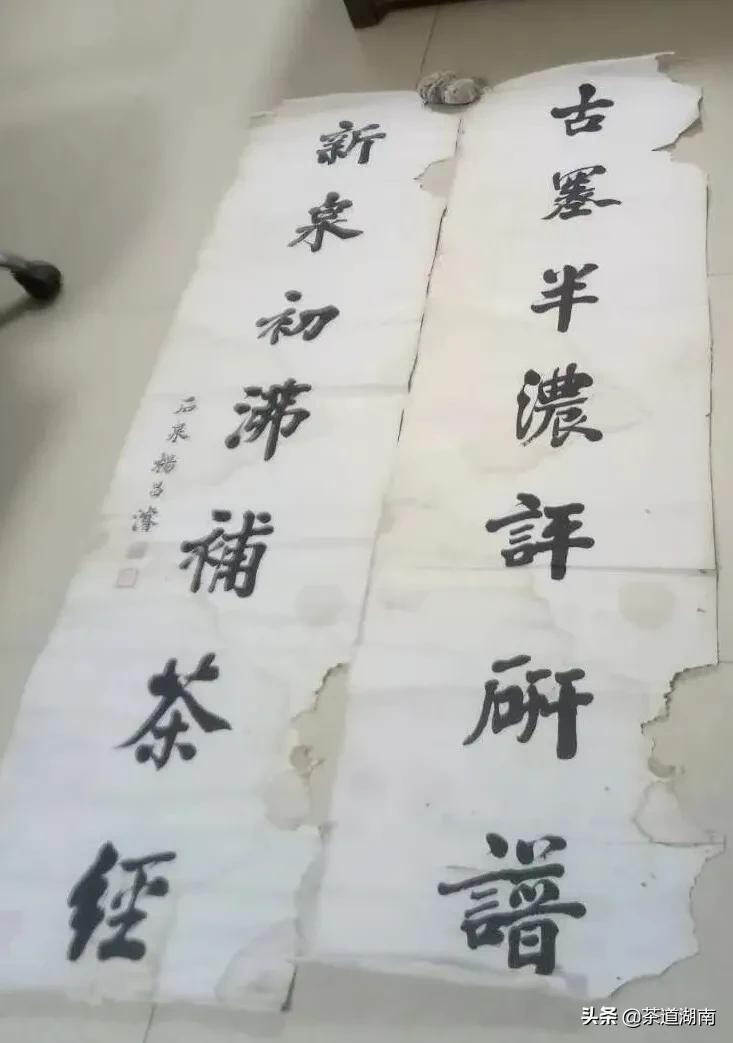 古墨半濃評研譜
新泉初沸補茶經
石泉楊昌濬
头条 @茶道湖南